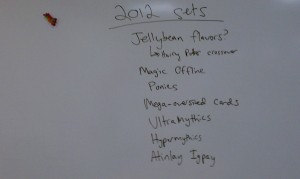 2012 sets
Jellybean flavors?
Harry Potter crossover
Magic Offline
Ponies
Mega-oversized Cards
Ultra Mythics
Hypermythics
Atinlay Igpay